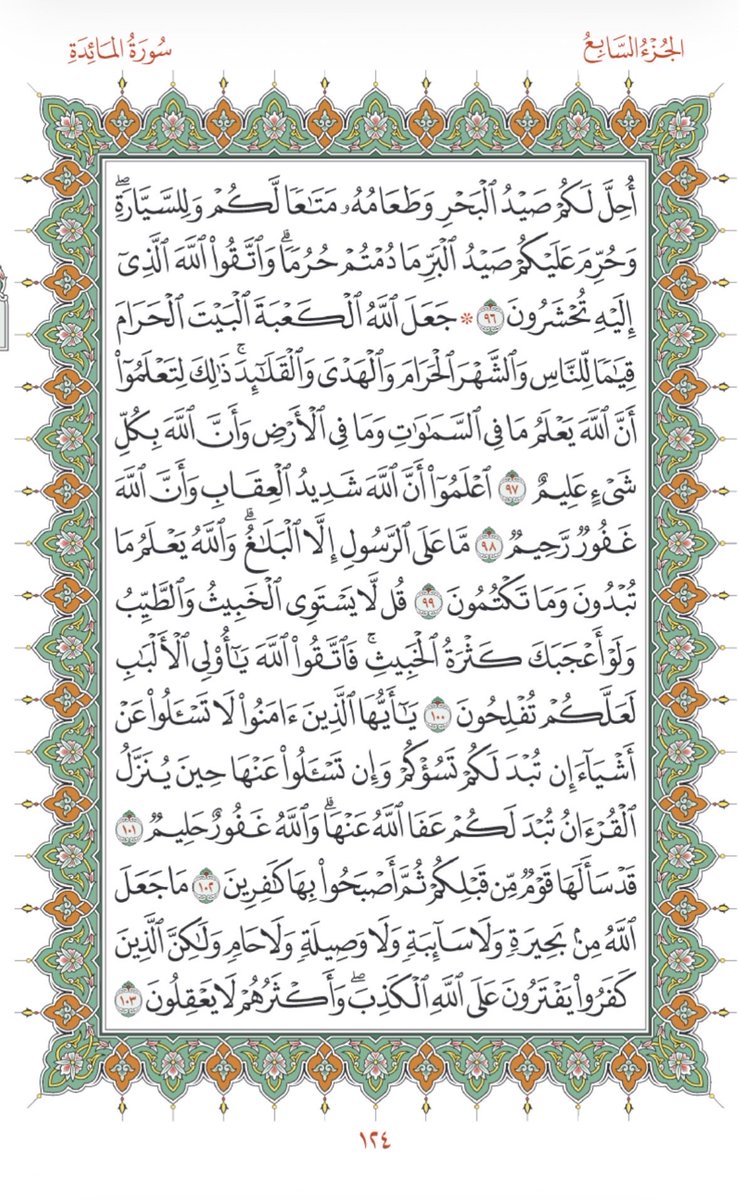 الجُزْءُ السَّابِعُ
سُورَةُ المَائِدَةِ
أُحِلَّ لَكُمۡ صَيۡدُ ٱلۡبَحۡرِ وَطَعَامُهُۥ مَتَٰعٗا لَّكُمۡ وَلِلسَّيَّارَةِۖ
وَحُرِّمَ عَلَيۡكُمۡ صَيۡدُ ٱلۡبَرِّ مَا دُمۡتُمۡ حُرُمٗاۗ وَٱتَّقُواْ ٱللَّهَ ٱلَّذِيٓ
إِلَيۡهِ تُحۡشَرُونَ ٩٦ * جَعَلَ ٱللَّهُ ٱلۡكَعۡبَةَ ٱلۡبَيۡتَ ٱلۡحَرَامَ
قِيَٰمٗا لِّلنَّاسِ وَٱلشَّهۡرَ ٱلۡحَرَامَ وَٱلۡهَدۡيَ وَٱلۡقَلَٰٓئِدَۚ ذَٰلِكَ لِتَعۡلَمُوٓاْ
أَنَّ ٱللَّهَ يَعۡلَمُ مَا فِي ٱلسَّمَٰوَٰتِ وَمَا فِي ٱلۡأَرۡضِ وَأَنَّ ٱللَّهَ بِكُلِّ
شَيۡءٍ عَلِيمٌ ٩٧ ٱعۡلَمُوٓاْ أَنَّ ٱللَّهَ شَدِيدُ ٱلۡعِقَابِ وَأَنَّ ٱللَّهَ
غَفُورٞ رَّحِيمٞ ٩٨ مَّا عَلَى ٱلرَّسُولِ إِلَّا ٱلۡبَلَٰغُۗ وَٱللَّهُ يَعۡلَمُ مَا
تُبۡدُونَ وَمَا تَكۡتُمُونَ ٩٩ قُل لَّا يَسۡتَوِي ٱلۡخَبِيثُ وَٱلطَّيِّبُ
وَلَوۡ أَعۡجَبَكَ كَثۡرَةُ ٱلۡخَبِيثِۚ فَٱتَّقُواْ ٱللَّهَ يَٰٓأُوْلِي ٱلۡأَلۡبَٰبِ
لَعَلَّكُمۡ تُفۡلِحُونَ ١٠٠ يَٰٓأَيُّهَا ٱلَّذِينَ ءَامَنُواْ لَا تَسۡـَٔلُواْ عَنۡ
أَشۡيَآءَ إِن تُبۡدَ لَكُمۡ تَسُؤۡكُمۡ وَإِن تَسۡـَٔلُواْ عَنۡهَا حِينَ يُنَزَّلُ
ٱلۡقُرۡءَانُ تُبۡدَ لَكُمۡ عَفَا ٱللَّهُ عَنۡهَاۗ وَٱللَّهُ غَفُورٌ حَلِيمٞ ١٠١
قَدۡ سَأَلَهَا قَوۡمٞ مِّن قَبۡلِكُمۡ ثُمَّ أَصۡبَحُواْ بِهَا كَٰفِرِينَ ١٠٢ مَا جَعَلَ
ٱللَّهُ مِنۢ بَحِيرَةٖ وَلَا سَآئِبَةٖ وَلَا وَصِيلَةٖ وَلَا حَامٖ وَلَٰكِنَّ ٱلَّذِينَ
كَفَرُواْ يَفۡتَرُونَ عَلَى ٱللَّهِ ٱلۡكَذِبَۖ وَأَكۡثَرُهُمۡ لَا يَعۡقِلُونَ ١٠٣
١٢٤